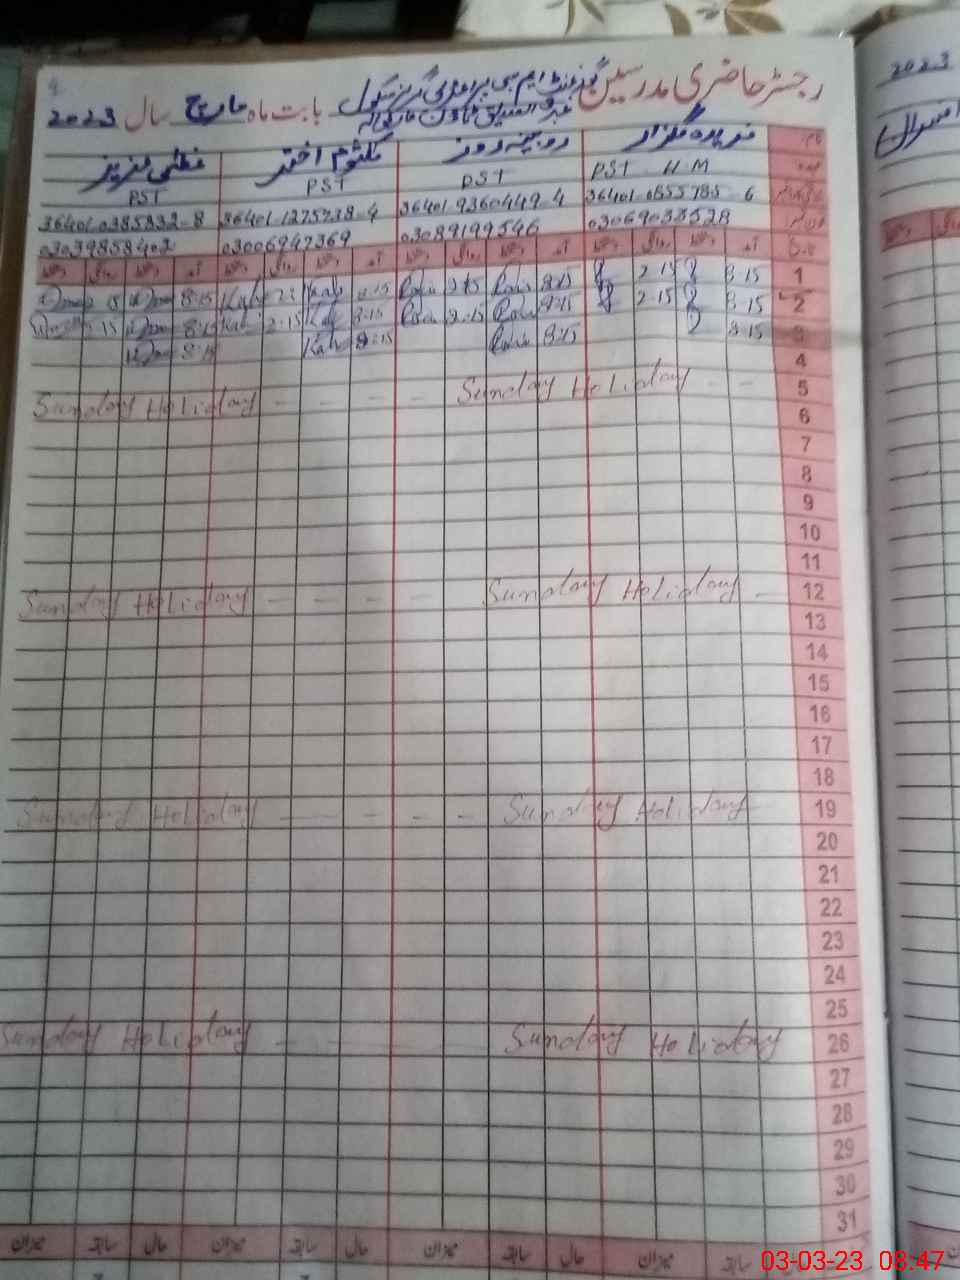 رجسٹر حاضری مدرسین گورنمنٹ ایم سی پرائمری گرلز سکول بابت ماہ مارچ سال 2023
نام فریدہ گلزار روبینہ روز کلثوم اختر عظمیٰ عزیز
PST H M PST PST PST
36401-0855785-6 36401-9360449-4 36401-1275738-4 36401-0385832-8
03069038528 03089199546 03006947369 03039858402
آمد دستخط روانگی دستخط آمد دستخط روانگی دستخط آمد دستخط روانگی دستخط آمد دستخط روانگی دستخط
1 8:15 2:15 8:15 2:15 8:15 8:15
2 8:15 2:15 8:15 2:15 8:15 2:15 8:15 2:15
3 8:15 8:15 8:15 8:15
4
5 Sunday Holiday - - Sunday Holiday - - - -
6
7
8
9
10
11
12 Sunday Holiday - Sunday Holiday - - - - -
13
14
15
16
17
18
19 Sunday Holiday - Sunday Holiday - - - - -
20
21
22
23
24
25
26 Sunday Holiday Sunday Holiday - -
27
28
29
30
31
سابقہ میزان حال سابقہ میزان حال سابقہ میزان حال سابقہ میزان
2023
03-03-23 08:47